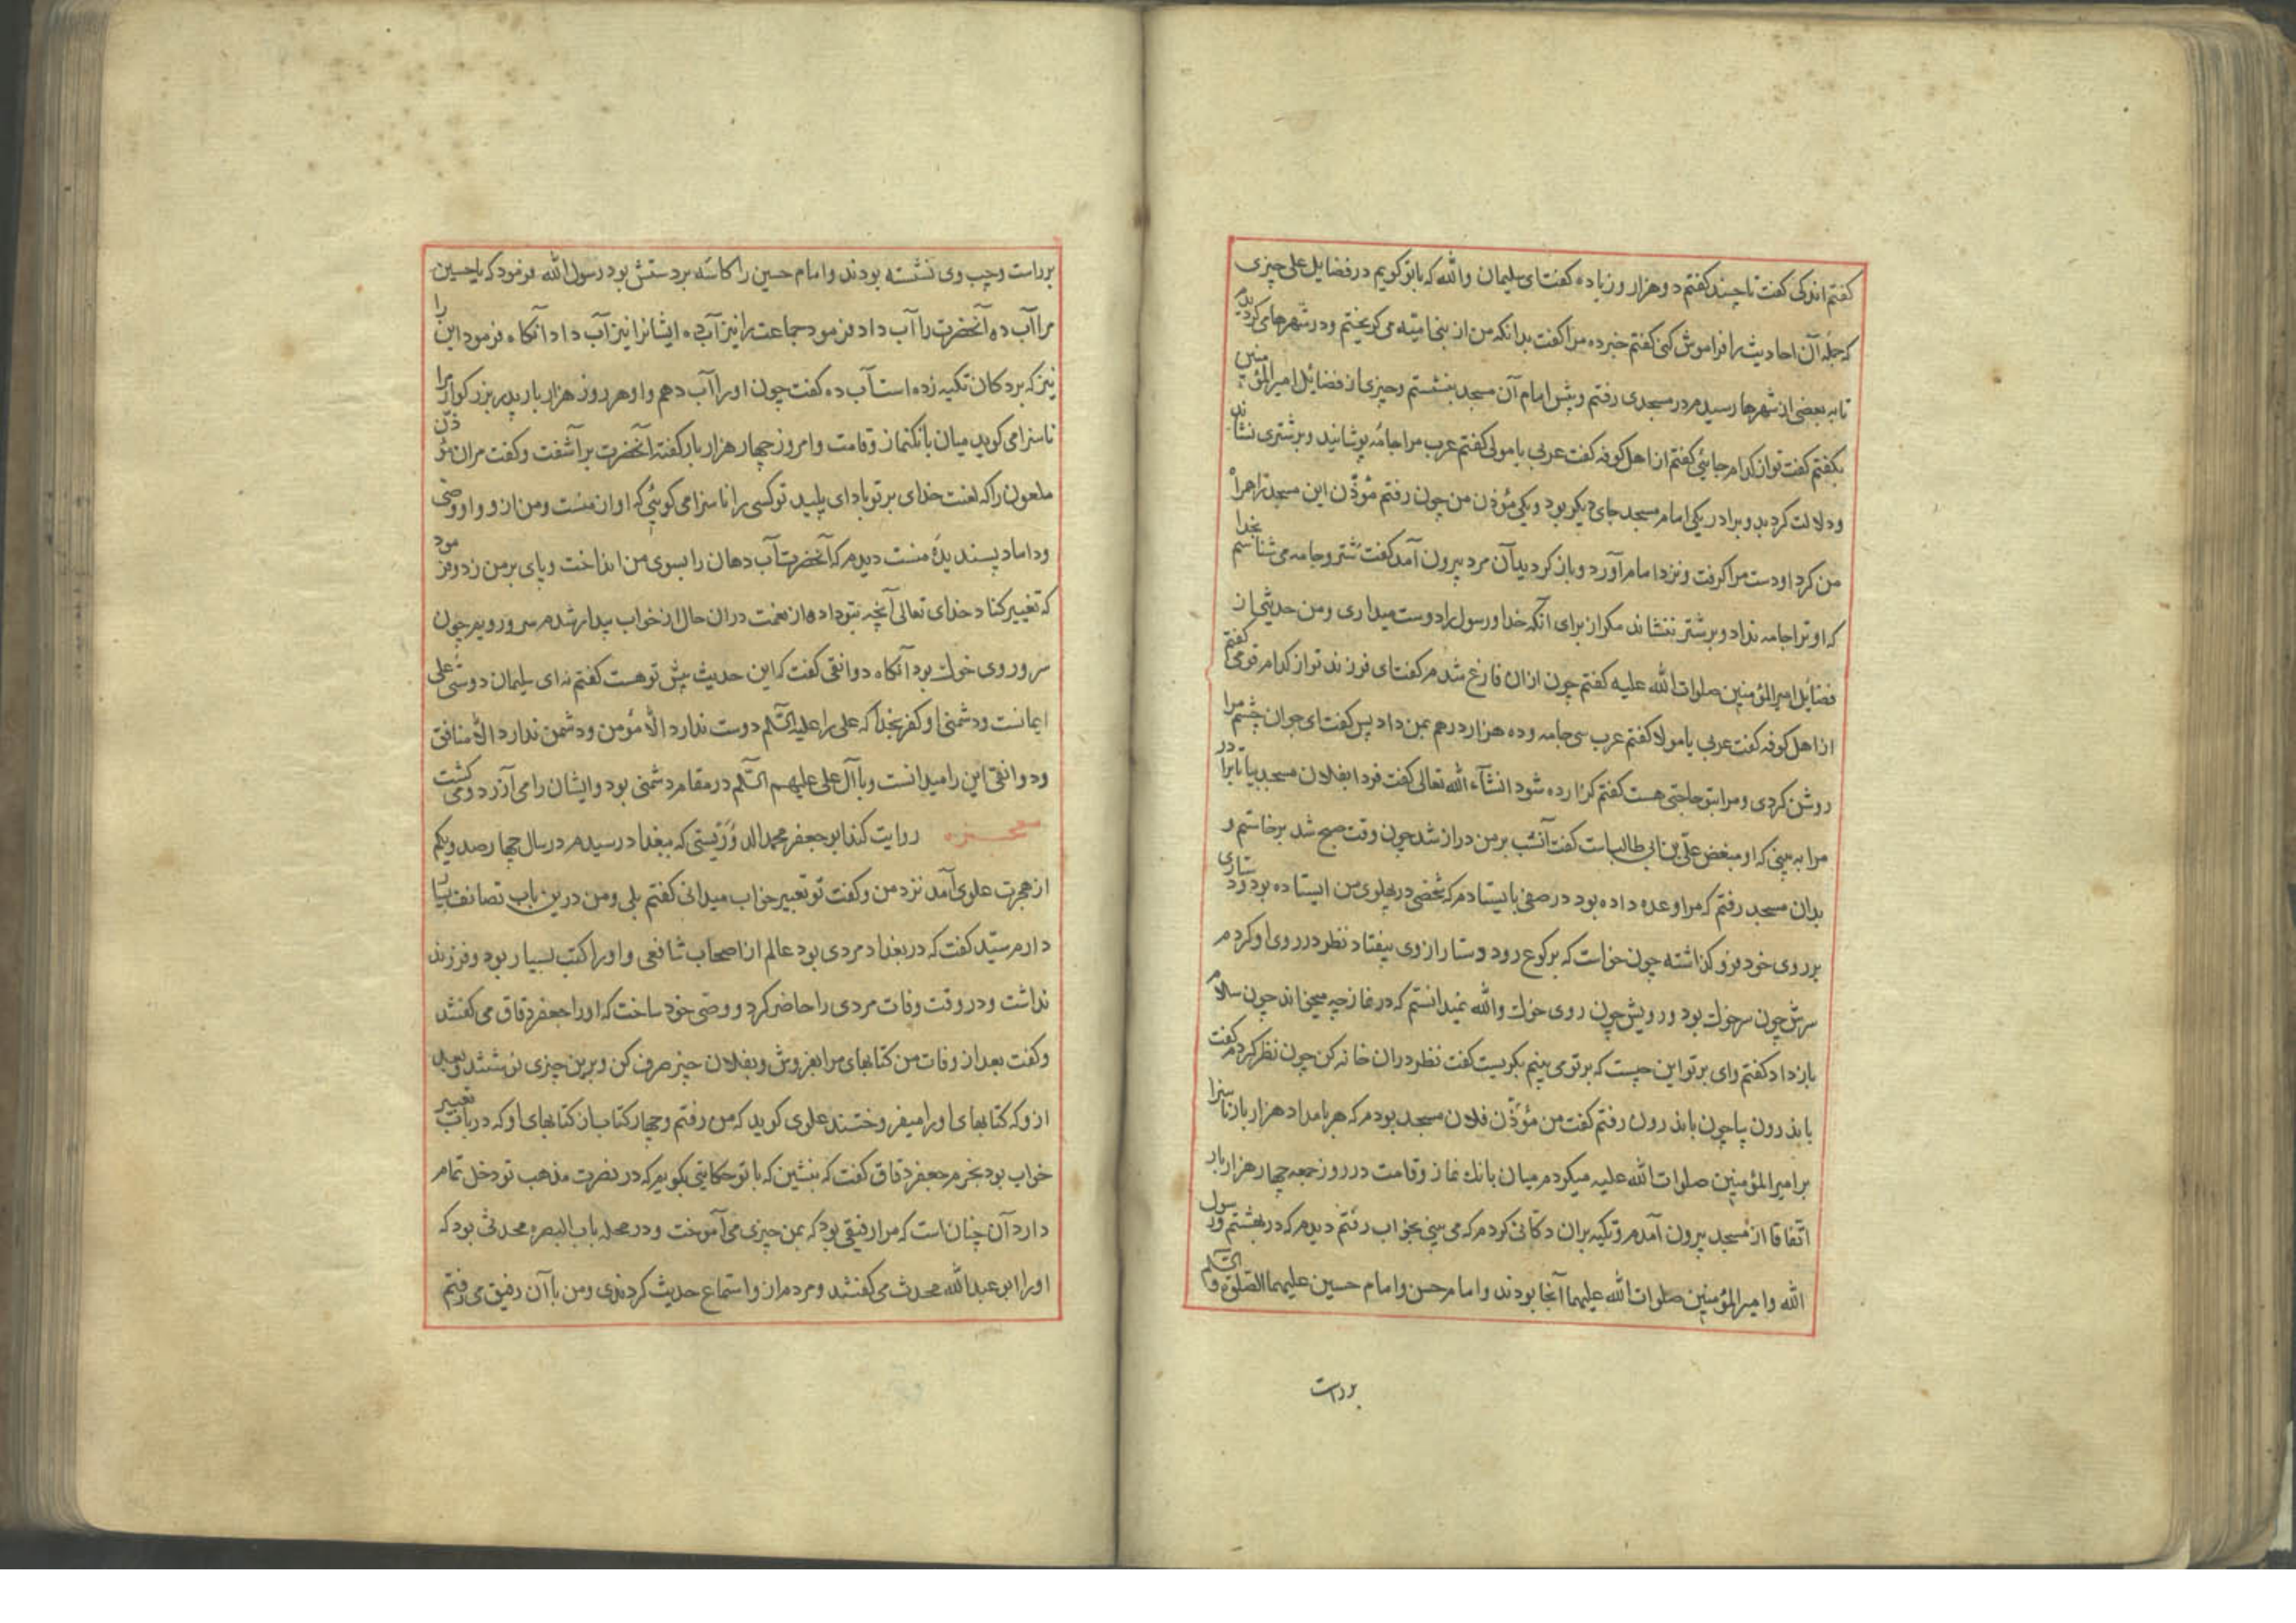 کفتم اندکی کفت تا چند کفتم دو هزار و زیاده کفت ای سلیمان والله که با تو کویم در فضایل علی چیزی
که جمله آن احادیث را فراموش کنی کفتم خبر ده مرا کفت بدانکه من از بنی امیه می کریختم و در شهرها می کردیدم
تا به بعضی از شهرها رسیدم در مسجدی رفتم و پیش امام آن مسجد بنشستم و چیزی از فضائل امیر المؤمنین
بکفتم کفت تو از کدام جائی کفتم از اهل کوفه کفت عربی یا مولی کفتم عرب مرا جامه پوشانید و بر شتری نشاند
و دلالت کرد بدو برادر یکی امام مسجد جای دیکر بود و یکی مؤذن من چون رفتم مؤذن این مسجد ترا همراه
من کرد او دست مرا کرفت و نزد امام آورد و باز کردید آن مرد بیرون آمد کفت شتر و جامه می شناسم بخدا
که او ترا جامه نداد و بر شتر ننشاند مکر از برای آنکه خدا و رسول را دوست میداری و من حدیثی از
فضایل امیر المؤمنین صلوات الله علیه کفتم چون از ان فارغ شدم کفت ای فرزند تو از کدام قومی کفتم
از اهل کوفه کفت عربی یا مولا کفتم عرب سی جامه و ده هزار درهم بمن داد پس کفت ای جوان چشم مرا
روشن کردی و مرا بتو حاجتی هست کفتم کزارده شود انشآء الله تعالی کفت فردا بفلان مسجد بیا تا برادر
مرا به بینی که او مبغض علی بن ابی طالب است کفت آنشب بر من دراز شد چون وقت صبح شد برخاستم و
بدان مسجد رفتم که مرا وعده داده بود در صفی بایستادم که شخصی در پهلوی من ایستاده بود و دستاری
بر روی خود فرو کذاشته چون خواست که برکوع رود دستار از وی بیفتاد نظر در روی او کردم
سرش چون سر خوك بود و رویش چون روی خوك والله نمیدانستم که در نماز چه میخواند چون سلام
باز داد کفتم وای بر تو این چیست که بر تو می بینم بکریست کفت نظر در ان خانه کن چون نظر کردم کفت
باندرون بیا چون باندرون رفتم کفت من مؤذن فلان مسجد بودم که هر بامداد هزار بار ناسزا
بر امیر المؤمنین صلوات الله علیه میکردم میان بانك نماز و قامت در روز جمعه چهار هزار بار
اتفاقا از مسجد بیرون آمدم و تکیه بران دکانی کردم که می بینی بخواب رفتم دیدم که در بهشتم و رسول
الله و امیر المؤمنین صلوات الله علیهما آنجا بودند و امام حسن و امام حسین علیهما الصلوة و السلم
بر راست
بر راست و چپ وی نشسته بودند و امام حسین را کاسه بر دستش بود رسول الله فرمود که یا حسین
مرا آب ده آنحضرت را آب داد فرمود جماعت را نیز آب ده ایشانرا نیز آب داد آنکاه فرمود این را
نیز که بر دکان تکیه زده است آب ده کفت چون او را آب دهم و او هر روز هزار بار پدر بزرکوار مرا
ناسزا می کوید میان بانکنماز و قامت و امروز چهار هزار بار کفته آنحضرت بر آشفت و کفت مران مؤذن
ملعون را که لعنت خدای بر تو باد ای پلید تو کسی را ناسزا می کوئی که او از منست و من از و و او وصی
و داماد پسندیدهٔ منست دیدم که آنحضرت آب دهان را بسوی من انداخت و پای بر من زد و فرمود
که تغییر کناد خدای تعالی آنچه بتو داده از نعمت دران حال از خواب بیدار شدم سر و رویم چون
سر و روی خوك بود آنکاه دوانقی کفت که این حدیث پیش تو هست کفتم نه ای سلیمان دوستی علی
ایمانست و دشمنی او کفر بخدا که علی را علیه السلم دوست ندارد الا مؤمن و دشمن ندارد الا منافق
و دوانقی این را میدانست و با آل علی علیهم السلم در مقام دشمنی بود و ایشان را می آزرد و می کشت
معجزه روایت کند ابو جعفر محمد الدوریستی که ببغداد رسیدم در سال چهارصد و یکم
از هجرت علوی آمد نزد من و کفت تو تعبیر خواب میدانی کفتم بلی و من درین باب تصانف بسیار
دارم سید کفت که در بغداد مردی بود عالم از اصحاب شافعی و او را کتب بسیار بود و فرزند
نداشت و در وقت وفات مردی را حاضر کرد و وصی خود ساخت که او را جعفر دقاق می کفتند
و کفت بعد از وفات من کتابهای مرا بفروش و بفلان چیز صرف کن و برین چیزی نوشتند و بعد
از و که کتابهای او را میفروختند علوی کوید که من رفتم و چهار کتاب از کتابهای او که در باب تعبیر
خواب بود بخرم جعفر دقاق کفت که بنشین که با تو حکایتی بکویم که در نصرت مذهب تو دخل تمام
دارد آن چنان است که مرا رفیقی بود که بمن چیزی می آموخت و در محله باب البصره محدثی بود که
او را ابو عبد الله محدث می کفتند و مردم از و استماع حدیث کردندی و من با آن رفیق می رفتم